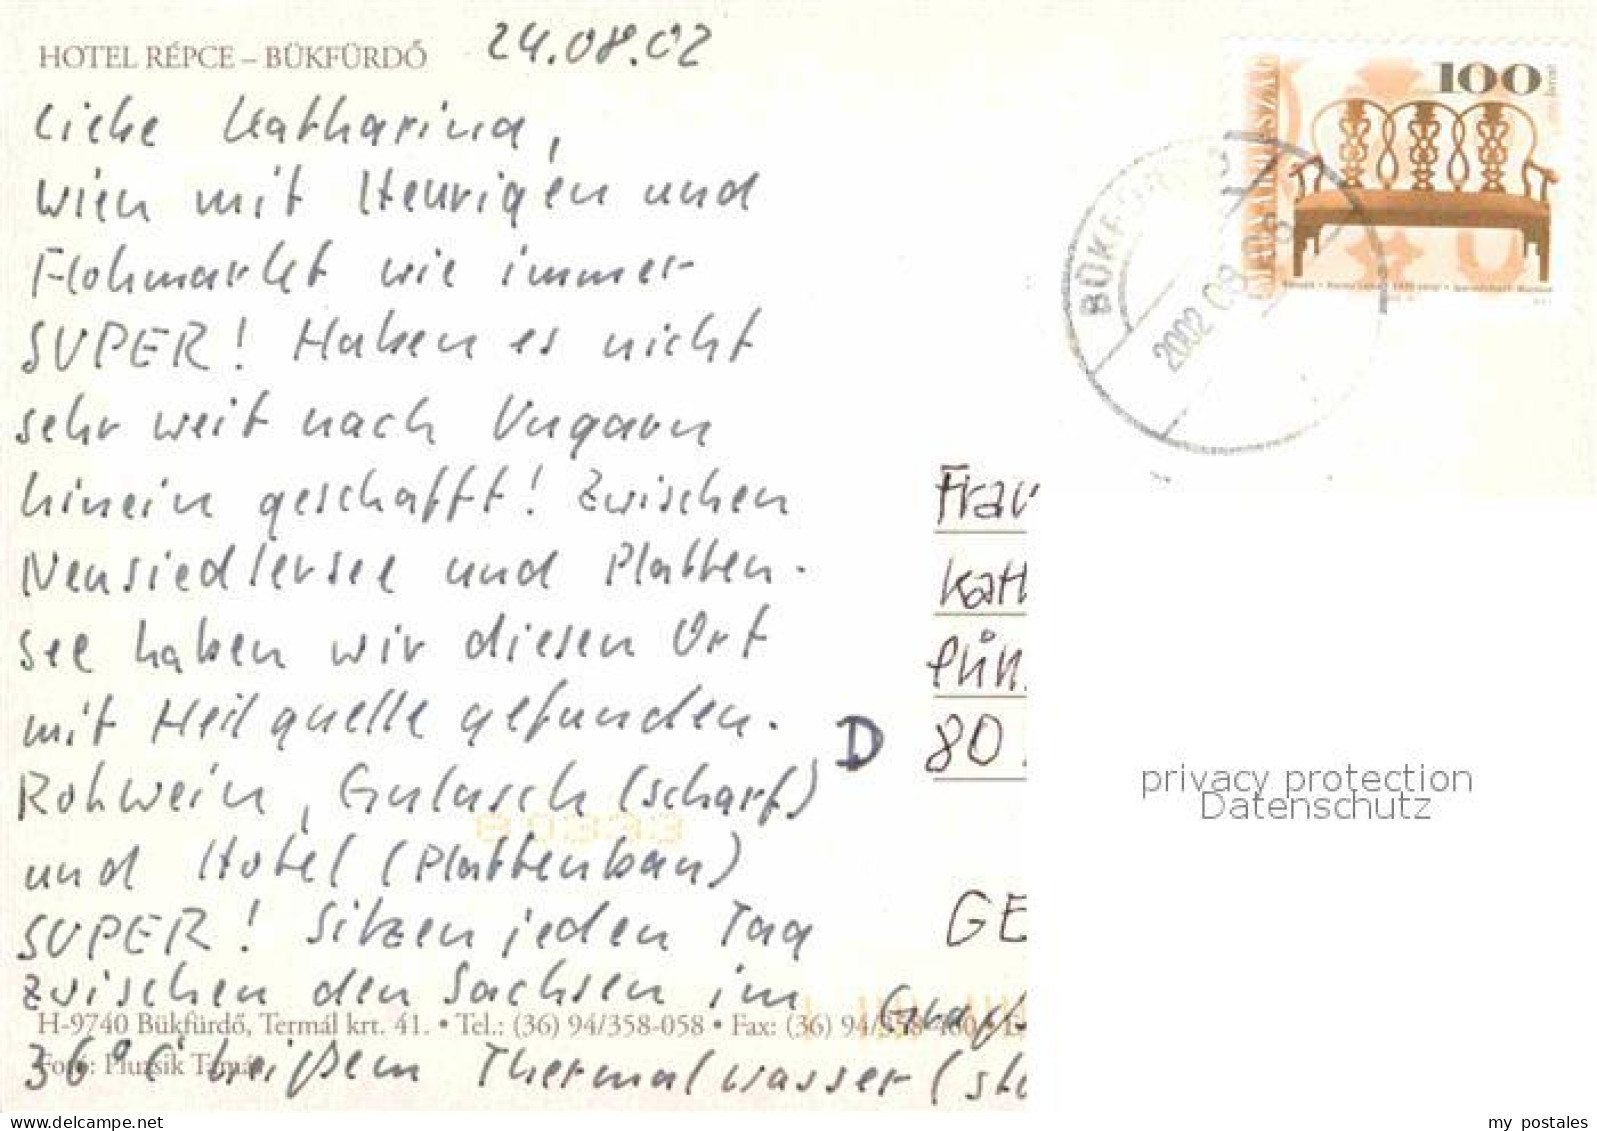 HOTEL RÉPCE – BÜKFÜRDŐ
24.08.02
100
MAGYARORSZÁG
BÜKFÜRDŐ
2002 08
Liebe Katharina,
Wien mit Heurigen und
Flohmarkt wie immer
SUPER! Haben es nicht
sehr weit nach Ungarn
hinein geschafft! Zwischen
Neusiedlersee und Platten-
see haben wir diesen Ort
mit Heilquelle gefunden.
Rohwein, Gulasch (scharf)
und Hotel (Plattenbau)
SUPER! Sitzen jeden Tag
zwischen den Sachsen im
36°C heißem Thermalwasser (
Frau
Kath
D 80
GE
80333
H-9740 Bükfürdő, Termál krt. 41. • Tel.: (36) 94/358-058 • Fax: (36) 94/358-
Fotó: Pluzsik Tamás
privacy protection
Datenschutz
www.delcampe.net
my_postales